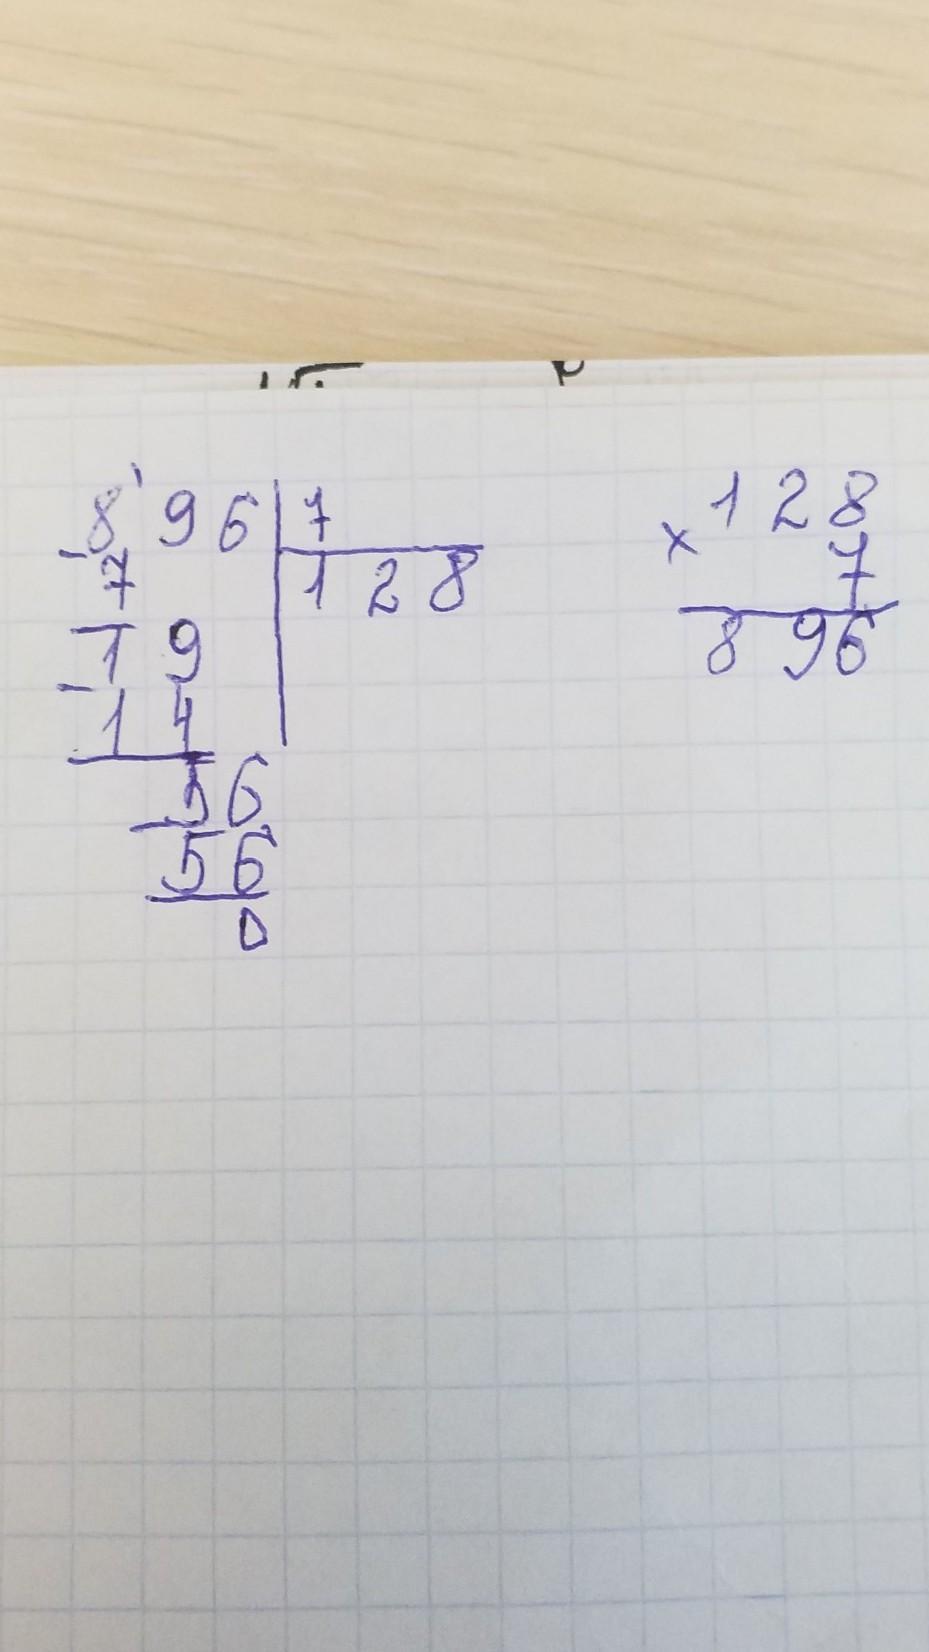 8'96 | 7
- 7 | 128
19
- 14
56
- 56
0
128
× 7
896